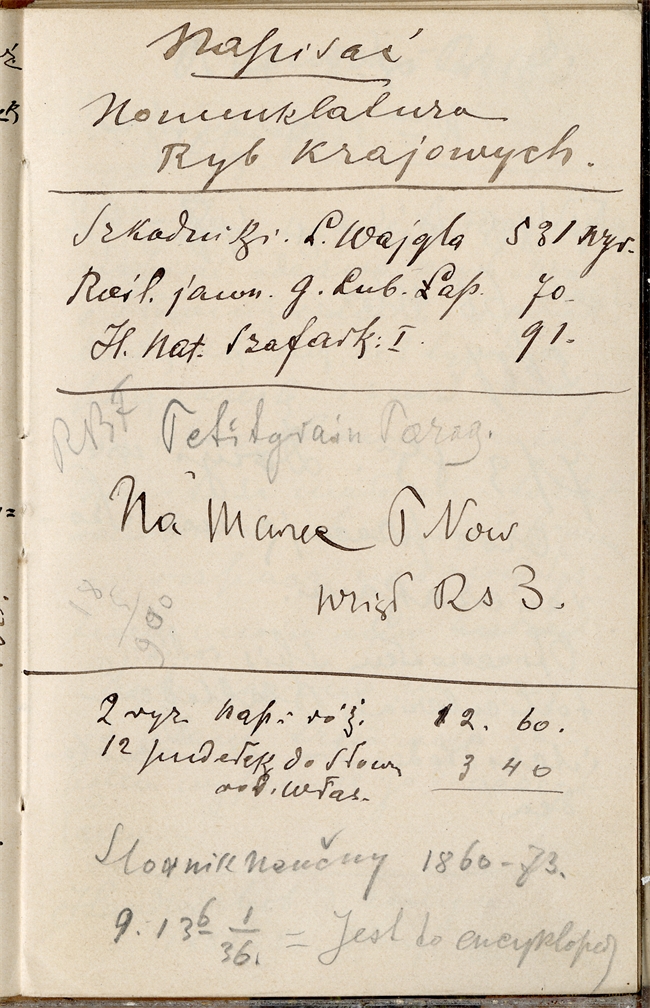 Napisać
Nomenklatura
Ryb Krajowych.
Szkodniki. L. Wajgla 531 wyr.
Rośl. jawn. g. Lub. Łap. 70.
H. Nat. Szafark: I. 91.
RBF Petitgrain Parag.
Na Marce T Now
wziął Rs 3.
2 wyr. Napi róż. 12. 60.
12 pudełek do Słown 3 40
od. włas.
Slovnik Naučny 1860-73.
9. 136 1/36. = Jest to encykloped